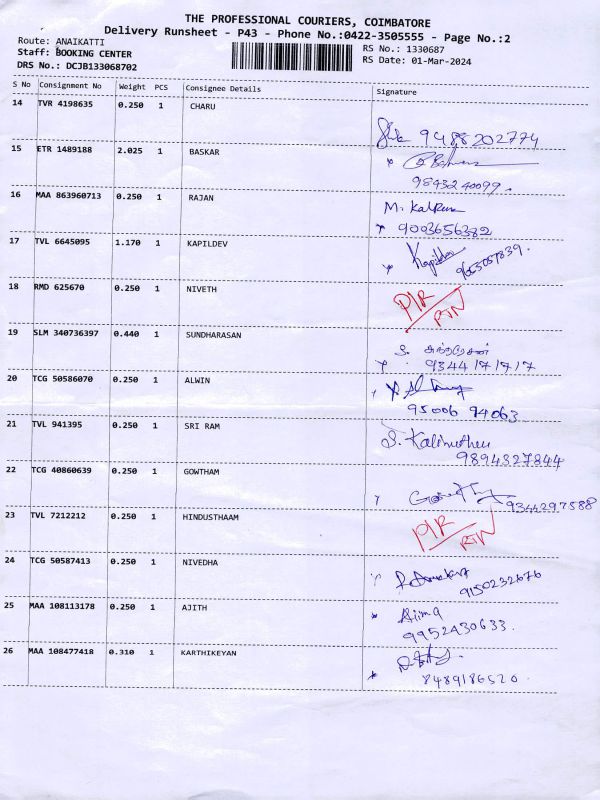 THE PROFESSIONAL COURIERS, COIMBATORE
Delivery Runsheet - P43 - Phone No.:0422-3505555 - Page No.:2
Route: ANAIKATTI
RS No.: 1330687
Staff: BOOKING CENTER
RS Date: 01-Mar-2024
DRS No.: DCJB133068702
S No Consignment No Weight PCS Consignee Details Signature
14 TVR 4198635 0.250 1 CHARU
9488202774
15 ETR 1489188 2.025 1 BASKAR
9843240099.
16 MAA 863960713 0.250 1 RAJAN
M.
9003656382
17 TVL 6645095 1.170 1 KAPILDEV
18 RMD 625670 0.250 1 NIVETH
P/R
RTN
19 SLM 340736397 0.440 1 SUNDHARASAN
S.
9344171717
20 TCG 50586070 0.250 1 ALWIN
95006 94063
21 TVL 941395 0.250 1 SRI RAM
S. Kalimuthu
9894327844
22 TCG 40860639 0.250 1 GOWTHAM
9344297588
23 TVL 7212212 0.250 1 HINDUSTHAAM
P/R
RTN
24 TCG 50587413 0.250 1 NIVEDHA
9150232676
25 MAA 108113178 0.250 1 AJITH
9952430633.
26 MAA 108477418 0.310 1 KARTHIKEYAN
8489186520.